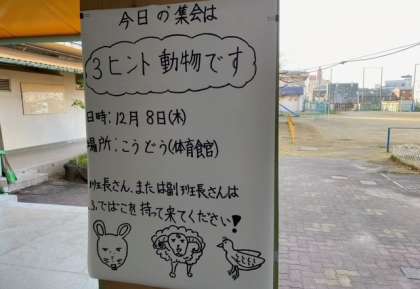 今日の集会は
3ヒント動物です
日時:12月8日(木)
場所:こうどう(体育館)
班長さん、または副班長さんは
ふでばこを持って来てください!